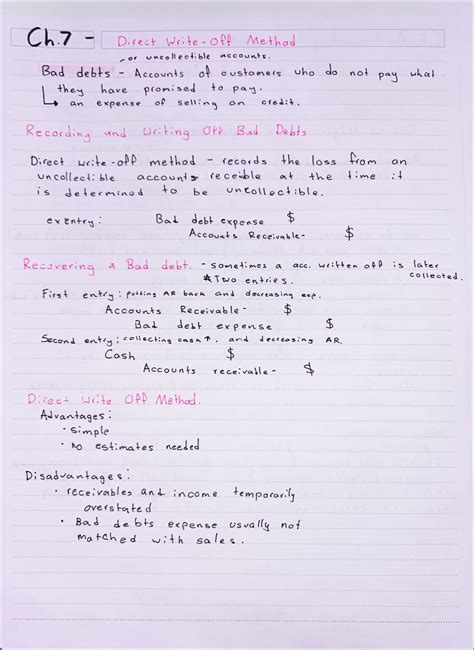 Ch.7 - Direct Write-Off Method
or uncollectible accounts.
Bad debts - Accounts of customers who do not pay what
they have promised to pay.
↳ an expense of selling on credit.
Recording and Writing Off Bad Debts
Direct write-off method - records the loss from an
uncollectible accounts receible at the time it
is determined to be uncollectible.
ex entry: Bad debt expense $
Accounts Receivable- $
Recovering a Bad debt. - sometimes a acc. written off is later
collected.
*Two entries.
First entry: putting AR back and decreasing exp.
Accounts Receivable- $
Bad debt expense $
Second entry: collecting cash↑. and decreasing AR.
Cash $
Accounts receivable- $
Direct Write Off Method.
Advantages:
• simple
• No estimates needed
Disadvantages:
• receivables and income temporarily
overstated
• Bad debts expense usually not
matched with sales.